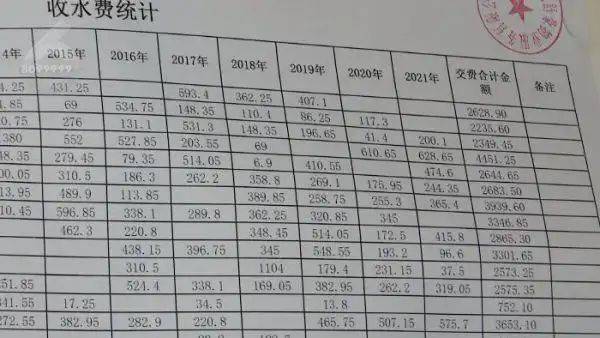 收水费统计
4年 2015年 2016年 2017年 2018年 2019年 2020年 2021年 交费合计金额 备注
4.25 431.25 593.4 362.25 407.1 2628.90
4.85 69 534.75 148.35 110.4 86.25 117.3 2235.60
0.75 276 131.1 531.3 148.35 196.65 41.4 200.1 2349.45
380 552 527.85 203.55 69 610.65 628.65 4451.25
48.35 279.45 79.35 514.05 6.9 410.55 474.6 2644.65
00.05 310.5 186.3 262.2 358.8 269.1 175.95 244.35 2683.50
13.95 489.9 113.85 389.85 258.75 255.3 365.4 3939.60
10.45 596.85 338.1 289.8 362.25 320.85 345 3346.85
462.3 220.8 348.45 514.05 172.5 415.8 2865.30
438.15 396.75 345 548.55 193.2 96.6 3301.65
310.5 1104 179.4 231.15 37.5 2573.25
251.85 524.4 338.1 169.05 382.95 262.2 319.05 2575.35
341.55 17.25 34.5 13.8 752.10
272.55 382.95 282.9 220.8 465.75 507.15 575.7 3653.10